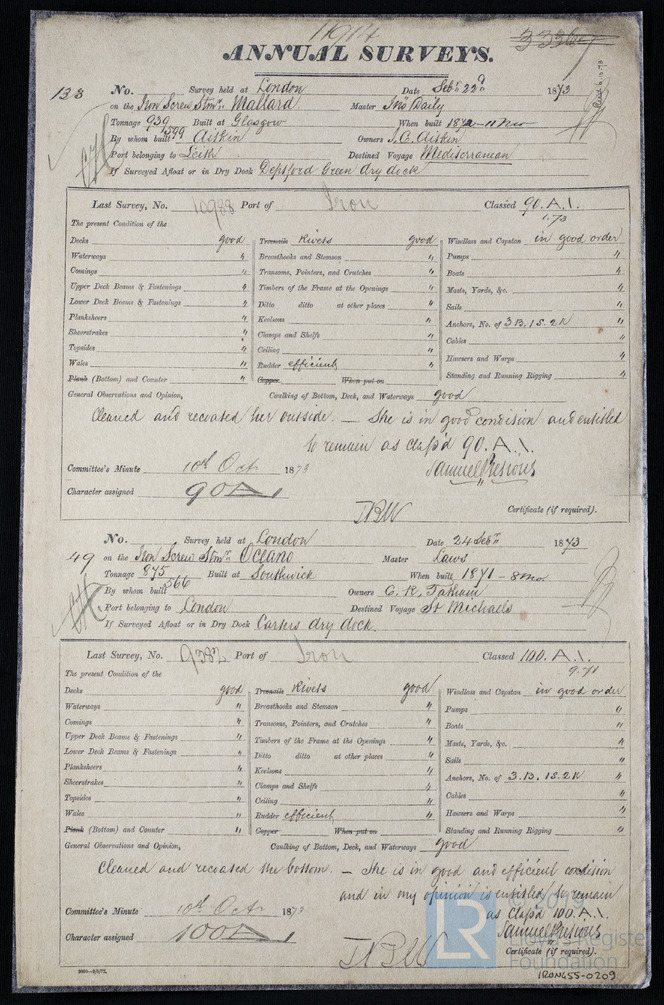 11914
3336
ANNUAL SURVEYS.
138 No. Survey held at London Date Sebr 22d 1873
on the Iron Screw Stmr Mallard Master Jno Daily
Tonnage 939 1399 Built at Glasgow When built 1872 - 11 Mos
By whom built Aitkin Owners J. C. Aitkin
Port belonging to Leith Destined Voyage Mediterranean
If Surveyed Afloat or in Dry Dock Deptford Green dry dock
Last Survey, No. 10988 Port of Iron Classed 90. A.1.
1.73
The present Condition of the
Decks good Treenails Rivets good Windlass and Capstan in good order
Waterways " Breasthooks and Stemson " Pumps "
Comings " Transoms, Pointers, and Crutches " Boats "
Upper Deck Beams & Fastenings " Timbers of the Frame at the Openings " Masts, Yards, &c. "
Lower Deck Beams & Fastenings " Ditto ditto at other places " Sails "
Planksheers " Keelsons " Anchors, No. of 3 B. 1 S. 2 K "
Sheerstrakes " Clamps and Shelfs " Cables "
Topsides " Ceiling " Hawsers and Warps "
Wales " Rudder efficient Standing and Running Rigging "
Plank (Bottom) and Counter " Copper When put on
General Observations and Opinion, Caulking of Bottom, Deck, and Waterways good
Cleaned and recoated her outside. — She is in good condition and entitled
to remain as class'd 90. A.1.
Committee's Minute 10th Oct 1873 Samuel Presious
Character assigned 90 A 1
Certificate (if required).
No. Survey held at London Date 24 Sebr 1873
49 on the Iron Screw Stmr Oceano Master Laws
Tonnage 875 566 Built at Southwick When built 1871 - 8 Mos
By whom built Owners C. R. Tatham
Port belonging to London Destined Voyage St Michaels
If Surveyed Afloat or in Dry Dock Carters dry dock.
Last Survey, No. 9382 Port of Iron Classed 100. A.1.
9.71
The present Condition of the
Decks good Treenails Rivets good Windlass and Capstan in good order
Waterways " Breasthooks and Stemson " Pumps "
Comings " Transoms, Pointers, and Crutches " Boats "
Upper Deck Beams & Fastenings " Timbers of the Frame at the Openings " Masts, Yards, &c. "
Lower Deck Beams & Fastenings " Ditto ditto at other places " Sails "
Planksheers " Keelsons " Anchors, No. of 3. B. 1 S. 2 K "
Sheerstrakes " Clamps and Shelfs " Cables "
Topsides " Ceiling " Hawsers and Warps "
Wales " Rudder efficient Standing and Running Rigging "
Plank (Bottom) and Counter " Copper When put on
General Observations and Opinion, Caulking of Bottom, Deck, and Waterways good
Cleaned and recoated the bottom. — She is in good and efficient condition
and in my opinion is entitled to remain
as class'd 100. A.1.
Committee's Minute 10th Oct 187 Samuel Presious
Character assigned 100 A 1
Certificate (if required).
LR
Lloyd's Register
Foundation
IRON455-0209